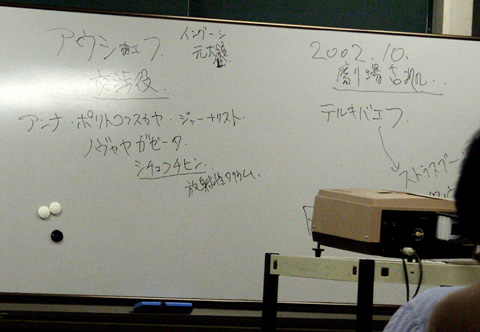 アウシェフ
イングーシ
元大統領
交渉役
アンナ・ポリトコフスカヤ・ジャーナリスト
ノヴャヤガゼータ
シチェコチヒン
放射性タリウム
2002.10.
劇場占拠...
テルキバエフ